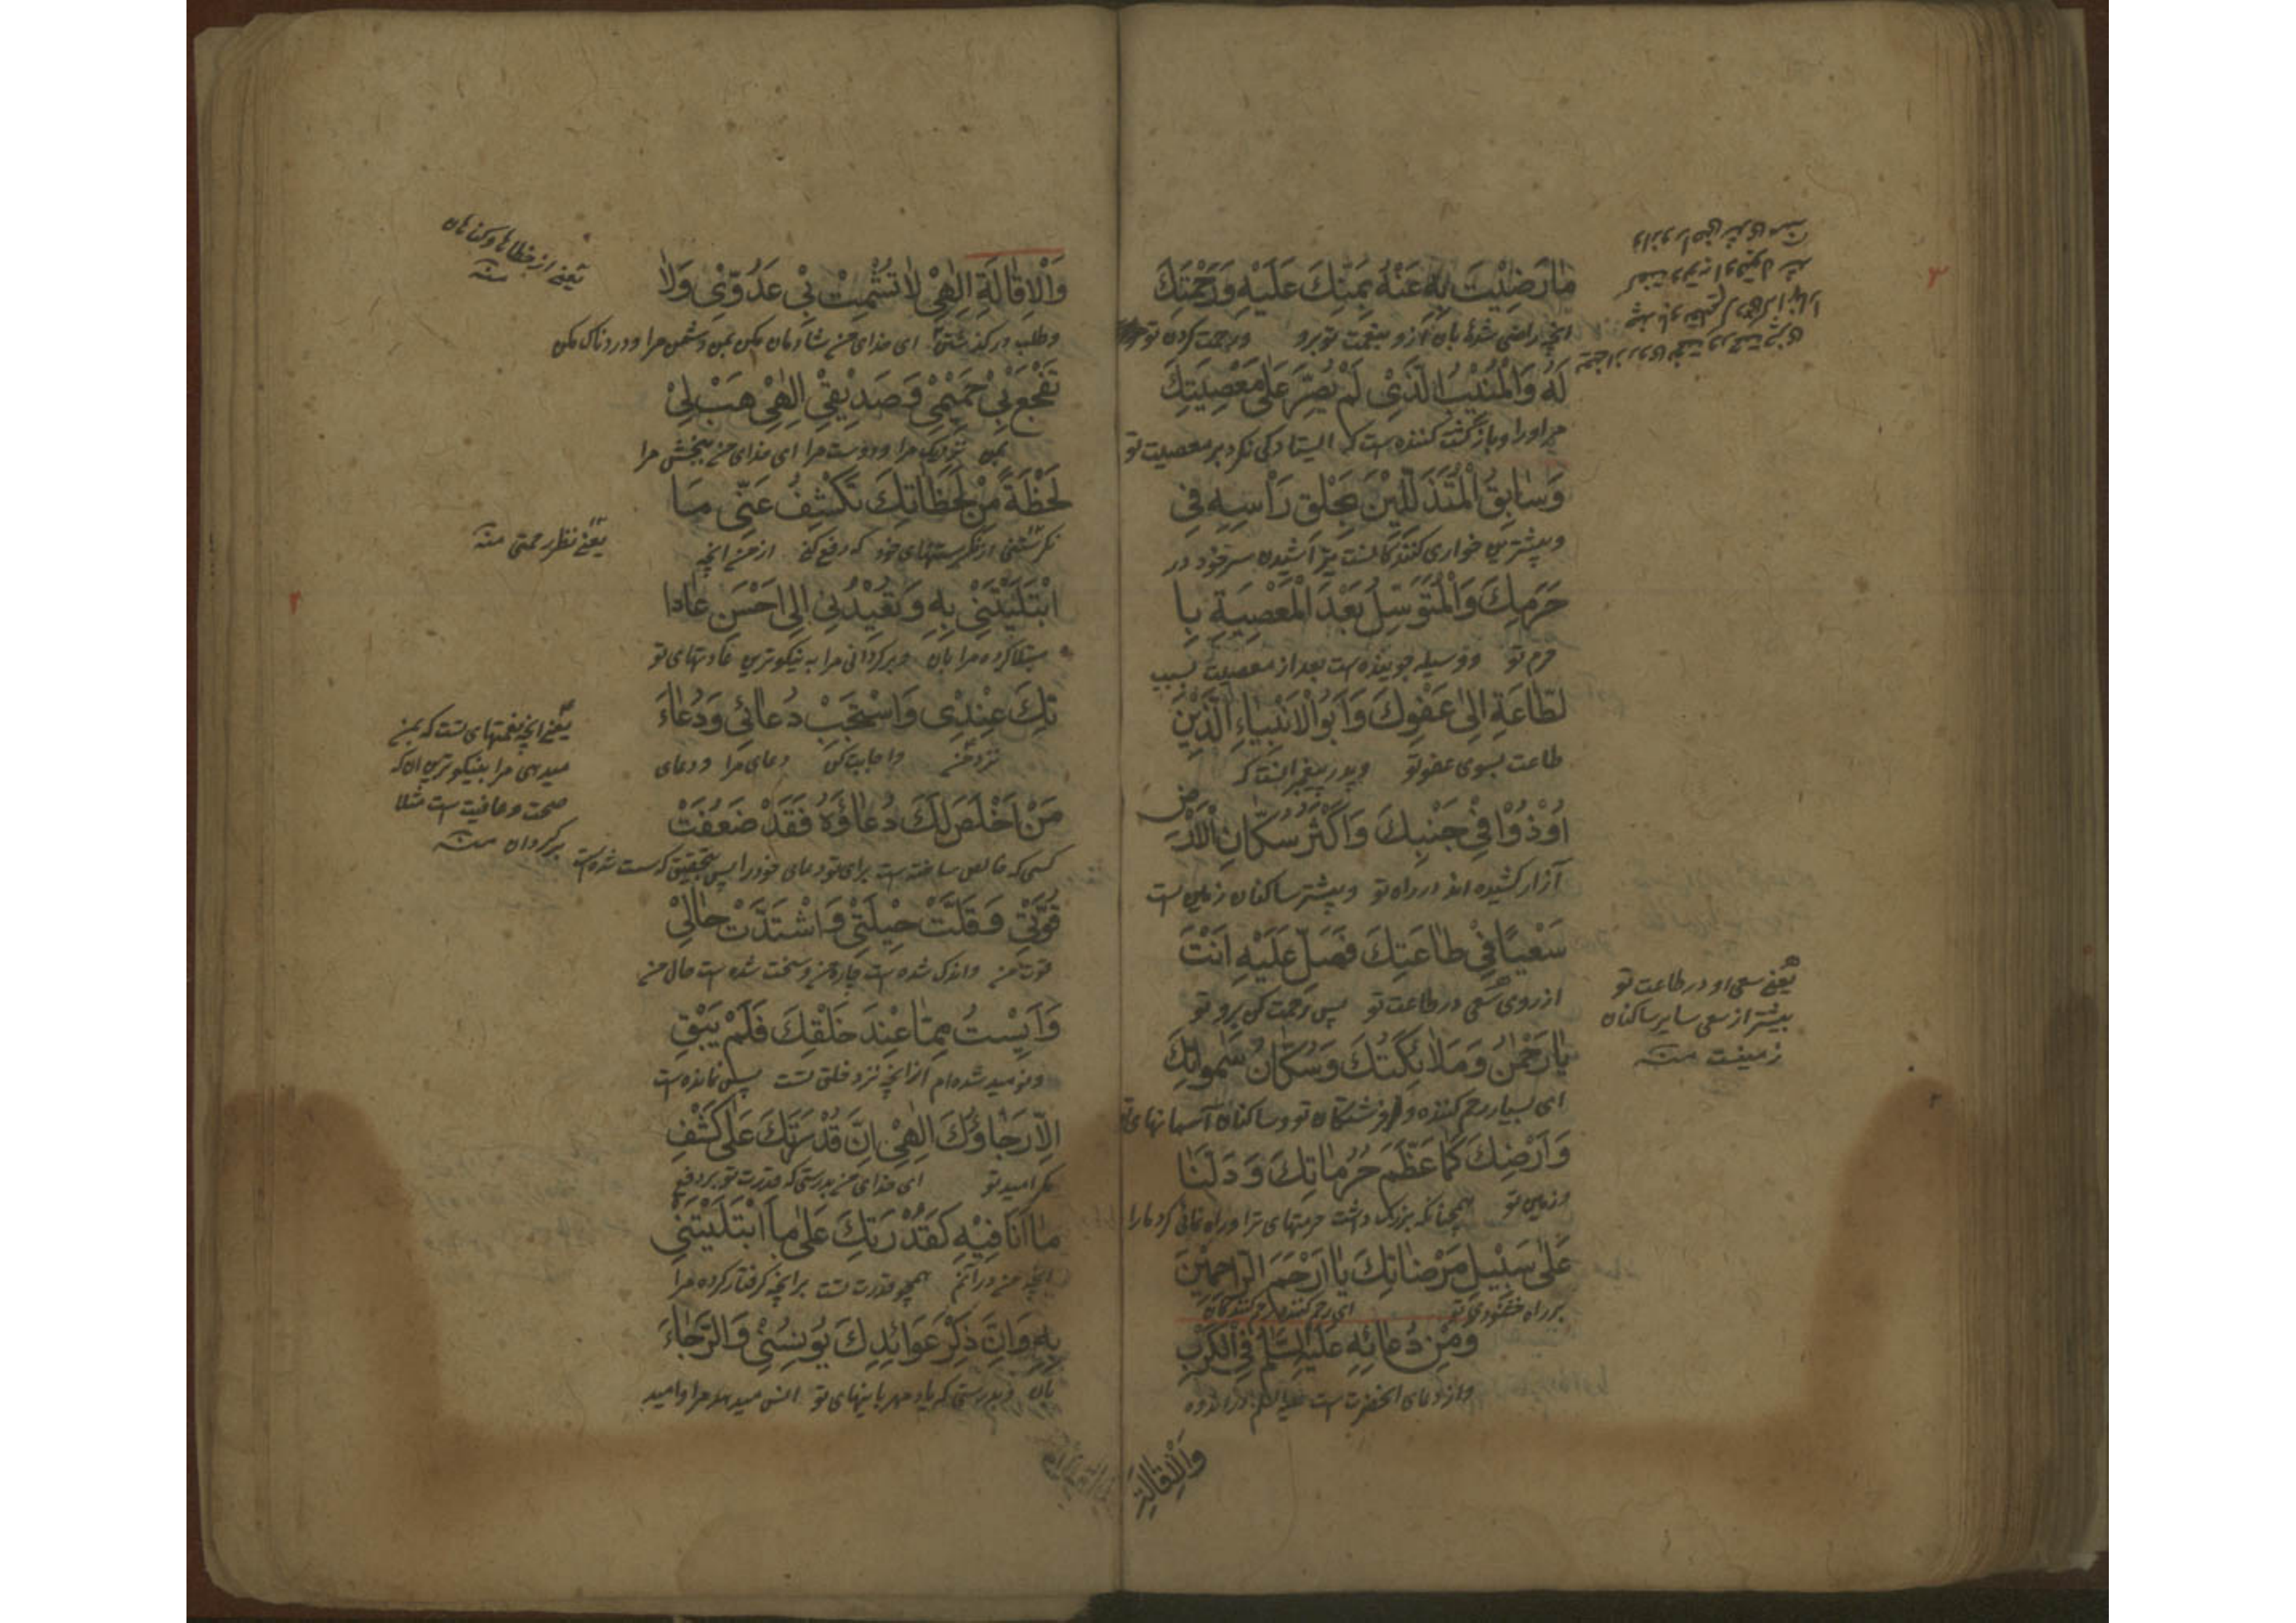 مٰا رَضِيْتَ بِهٖ عَنْهُ بِمَنِّكَ عَلَيْهِ وَرَحْمَتِكَ
انچه راضی شدهٔ بان ازو بنعمت تو برو ورحمت کردن تو
لَهُ وَالْمُنِيْبُ الَّذِیْ لَمْ يُصِرَّ عَلٰی مَعْصِيَتِكَ
مر اورا و بازگشت کننده است که ایستادکی نکرد بر معصیت تو
وَسٰابِقُ الْمُتَذَلِّلِيْنَ بِحَلْقِ رَأْسِهٖ فِیْ
وپیشترین خواری کنندکانست بتراشیدن سر خود در
حَرَمِكَ وَالْمُتَوَسِّلُ بَعْدَ الْمَعْصِيَةِ بِا
حرم تو ووسیله جوینده است بعد از معصیت بسبب
لطّٰاعَةِ اِلٰی عَفْوِكَ وَاَبُو الْاَنْبِيٰاءِ الَّذِيْنَ
طاعت بسوی عفو تو وپدر پیغمبرانست که
اُوْذُوْا فِیْ جَنْبِكَ وَاَكْثَرُ سُكّٰانِ الْاَرْضِ
آزار کشیده اند در راه تو وبیشتر ساکنان زمین است
سَعْيًا فِیْ طٰاعَتِكَ فَصَلِّ عَلَيْهِ اَنْتَ
از روی سعی در طاعت تو پس رحمت کن برو تو
يٰا رَحْمٰنُ وَمَلٰائِكَتُكَ وَسُكّٰانُ سَمٰوٰاتِكَ
ای بسیار رحم کننده و فرشتگان تو وساکنان آسمانهای تو
وَاَرْضِكَ كَمٰا عَظَّمَ حُرُمٰاتِكَ وَدَلَّنٰا
وزمین تو همچنانکه بزرک داشت حرمتهای ترا وراه نمائی کرد مارا
عَلٰی سَبِيْلِ مَرْضٰاتِكَ يٰا اَرْحَمَ الرّٰاحِمِيْنَ
بر راه خشنودی تو ای رحم کننده‌تر رحم کنندکان
وَمِنْ دُعٰائِهٖ عَلَيْهِ السَّلٰمُ فِی الْكَرْبِ
واز دعای انحضرت است علیه السلم در اندوه
وَالْاِقٰالَةِ
یعنے سعی او در طاعت تو
بیشتر از سعی سایر ساکنان
زمینست منه
وَالْاِقٰالَةِ اِلٰهِیْ لٰا تُشْمِتْ بِیْ عَدُوِّیْ وَلٰا
وطلب در کذشتن ای خدای من شادمان مکن بمن دشمن مرا ودردناک مکن
تَفْجَعْ بِیْ حَمِيْمِیْ وَصَدِيْقِیْ اِلٰهِیْ هَبْ لِیْ
بمن نزدیک مرا ودوست مرا ای خدای من ببخش مرا
لَحْظَةً مِنْ لَحَظٰاتِكَ تَكْشِفُ عَنِّیْ مٰا
نکرستنی از نکرستنهای خود که دفع کنی از من انچه
ابْتَلَيْتَنِیْ بِهٖ وَتُعِيْدُنِیْ اِلٰی اَحْسَنِ عٰادا
مبتلا کرده مرا بان وبر کردانی مرا به نیکوترین عادتهای تو
تِكَ عِنْدِیْ وَاسْتَجِبْ دُعٰائِیْ وَدُعٰاءَ
نزد من واجابت کن دعای مرا ودعای
مَنْ اَخْلَصَ لَكَ دُعٰاؤَهُ فَقَدْ ضَعُفَتْ
کسی که خالص ساخته است برای تو دعای خود را پس بتحقیق که سست شده است
قُوَّتِیْ وَقَلَّتْ حِيْلَتِیْ وَاشْتَدَّتْ حٰالِیْ
قوت من واندک شده است چاره من وسخت شده است حال من
وَاَيِسْتُ مِمّٰا عِنْدَ خَلْقِكَ فَلَمْ يَبْقِ
ونومید شده‌ام از انچه نزد خلق تست پس نمانده است
اِلّٰا رَجٰاؤُكَ اِلٰهِیْ اِنَّ قُدْرَتَكَ عَلٰی كَشْفِ
مکر امید تو ای خدای من بدرستی که قدرت تو بر دفع
مٰا اَنَا فِيْهِ كَقُدْرَتِكَ عَلٰی مٰا ابْتَلَيْتَنِیْ
انچه من در آنم همچو قدرت تست بر انچه کرفتار کرده مرا
بِهٖ وَاِنَّ ذِكْرَ عَوٰائِدِكَ يُوْنِسُنِیْ وَالرَّجٰاءَ
بان وبدرستی که یاد مهربانیهای تو انس میدهد مرا وامید
یعنے از خطاها وکناهان
منه
یعنے نظر رحمتی منه
یعنے انچه نعمتهای تست که بمن
میدهی مرا بنیکوترین ان که
صحت وعافیت است مثلا
برکردان منه